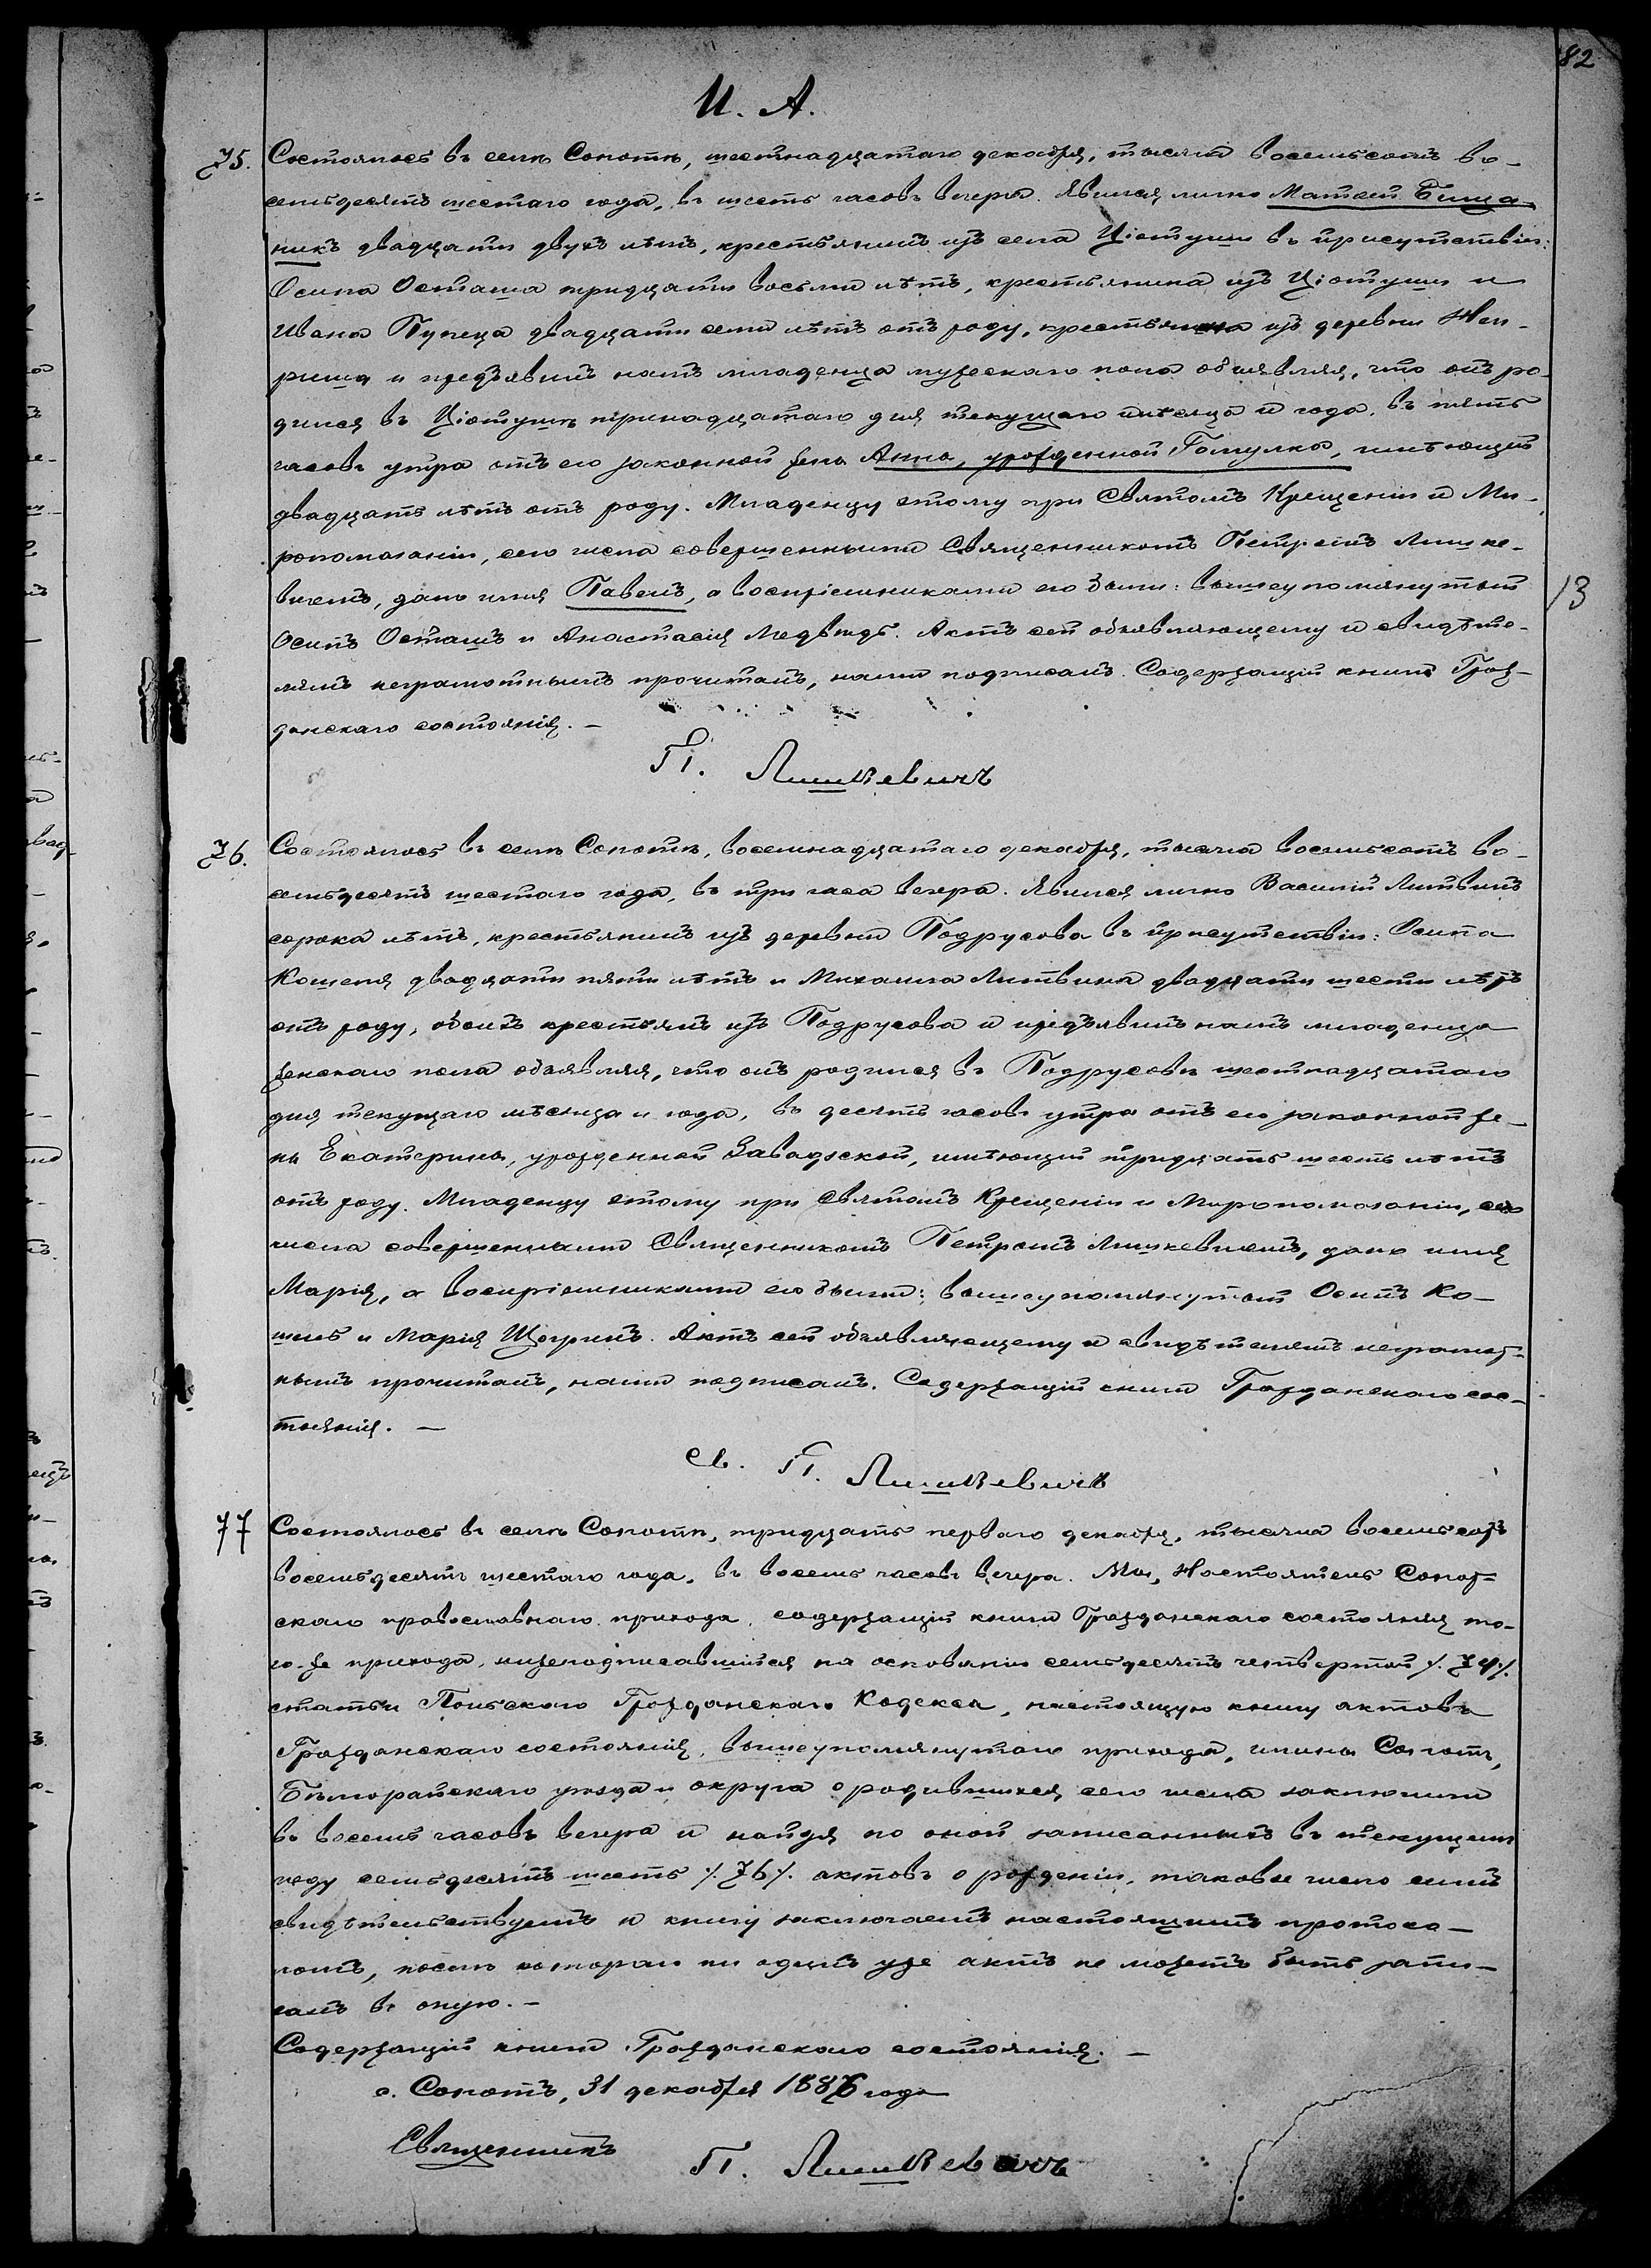 82
И. А.
75. Состоялось въ селѣ Сопотѣ, шестнадцатаго декабря, тысяча восемьсотъ во-
семьдесятъ шестаго года, въ шесть часовъ вечера. Явился лично Матвей
никъ двадцати двухъ лѣтъ, крестьянинъ изъ села Ціотуши въ присутствіи:
Осипа Осташа тридцати восьми лѣтъ, крестьянина изъ Ціотуши и
Ивана двадцати семи лѣтъ отъ роду, крестьянина изъ деревни Неп-
рыша и предъявилъ намъ младенца мужескаго пола объявляя, что онъ ро-
дился въ Ціотушѣ тринадцатаго дня текущаго мѣсяца и года, въ пять
часовъ утра отъ его законной жены Анны, урожденной Гомулка, имѣющей
двадцать лѣтъ отъ роду. Младенцу этому при Святомъ Крещеніи и Ми-
ропомазаніи, сего числа совершенными Священникомъ Петромъ Лишке-
вичемъ, дано имя Павелъ, а воспріемниками его были: вышеупомянутый
Осипъ Осташъ и Анастасія Медвѣдь. Актъ сей объявляющему и свидѣте-
лямъ неграмотнымъ прочитанъ, нами подписанъ. Содержащій книги Граж-
данскаго состоянія. –
13
П. Лишкевичъ
76. Состоялось въ селѣ Сопотѣ, восемнадцатаго декабря, тысяча восемьсотъ во-
семьдесятъ шестаго года, въ три часа вечера. Явился лично Василій Литвинъ
сорока лѣтъ, крестьянинъ изъ деревни Подрусова въ присутствіи: Осипа
Кошеля двадцати пяти лѣтъ и Михаила Литвина двадцати шести лѣтъ
отъ роду, обоихъ крестьянъ изъ Подрусова и предъявилъ намъ младенца
женскаго пола объявляя, что онъ родился въ Подрусовѣ шестнадцатаго
дня текущаго мѣсяца и года, въ десять часовъ утра отъ его законной же-
ны Екатерины, урожденной Завадзской, имѣющей тридцать шесть лѣтъ
отъ роду. Младенцу этому при Святомъ Крещеніи и Миропомазаніи, сего
числа совершенными Священникомъ Петромъ Лишкевичемъ, дано имя
Марія, а воспріемниками его были: вышеупомянутый Осипъ Ко-
шель и Марія Щогринъ. Актъ сей объявляющему и свидѣтелямъ неграмот-
нымъ прочитанъ, нами подписанъ. Содержащій книги Гражданскаго сос-
тоянія. –
Св. П. Лишкевичъ
77 Состоялось въ селѣ Сопотѣ, тридцать перваго декабря, тысяча восемьсотъ
восемьдесятъ шестаго года, въ восемь часовъ вечера. Мы, Настоятель Сопот-
скаго православнаго прихода, содержащій книги Гражданскаго состоянія то-
го-же прихода, нижеподписавшійся на основаніи семьдесятъ четвертой ·/. 74 ·/.
статьи Польскаго Гражданскаго Кодекса, настоящую книгу актовъ
Гражданскаго состоянія, вышеупомянутаго прихода, гмины Сопотъ,
Бѣлгорайскаго уѣзда и округа о родившихся сего числа заключили
въ восемь часовъ вечера и найдя по оной записанныхъ въ текущемъ
году семьдесятъ шесть ·/. 76 ·/. актовъ о рожденіи, таковое число симъ
свидѣтельствуемъ и книгу заключаемъ настоящимъ протоко-
ломъ, послѣ котораго ни одинъ уже актъ не можетъ быть запи-
санъ въ оную. –
Содержащій книги Гражданскаго состоянія. –
с. Сопотъ, 31 декабря 1886 года
Священникъ П. Лишкевичъ